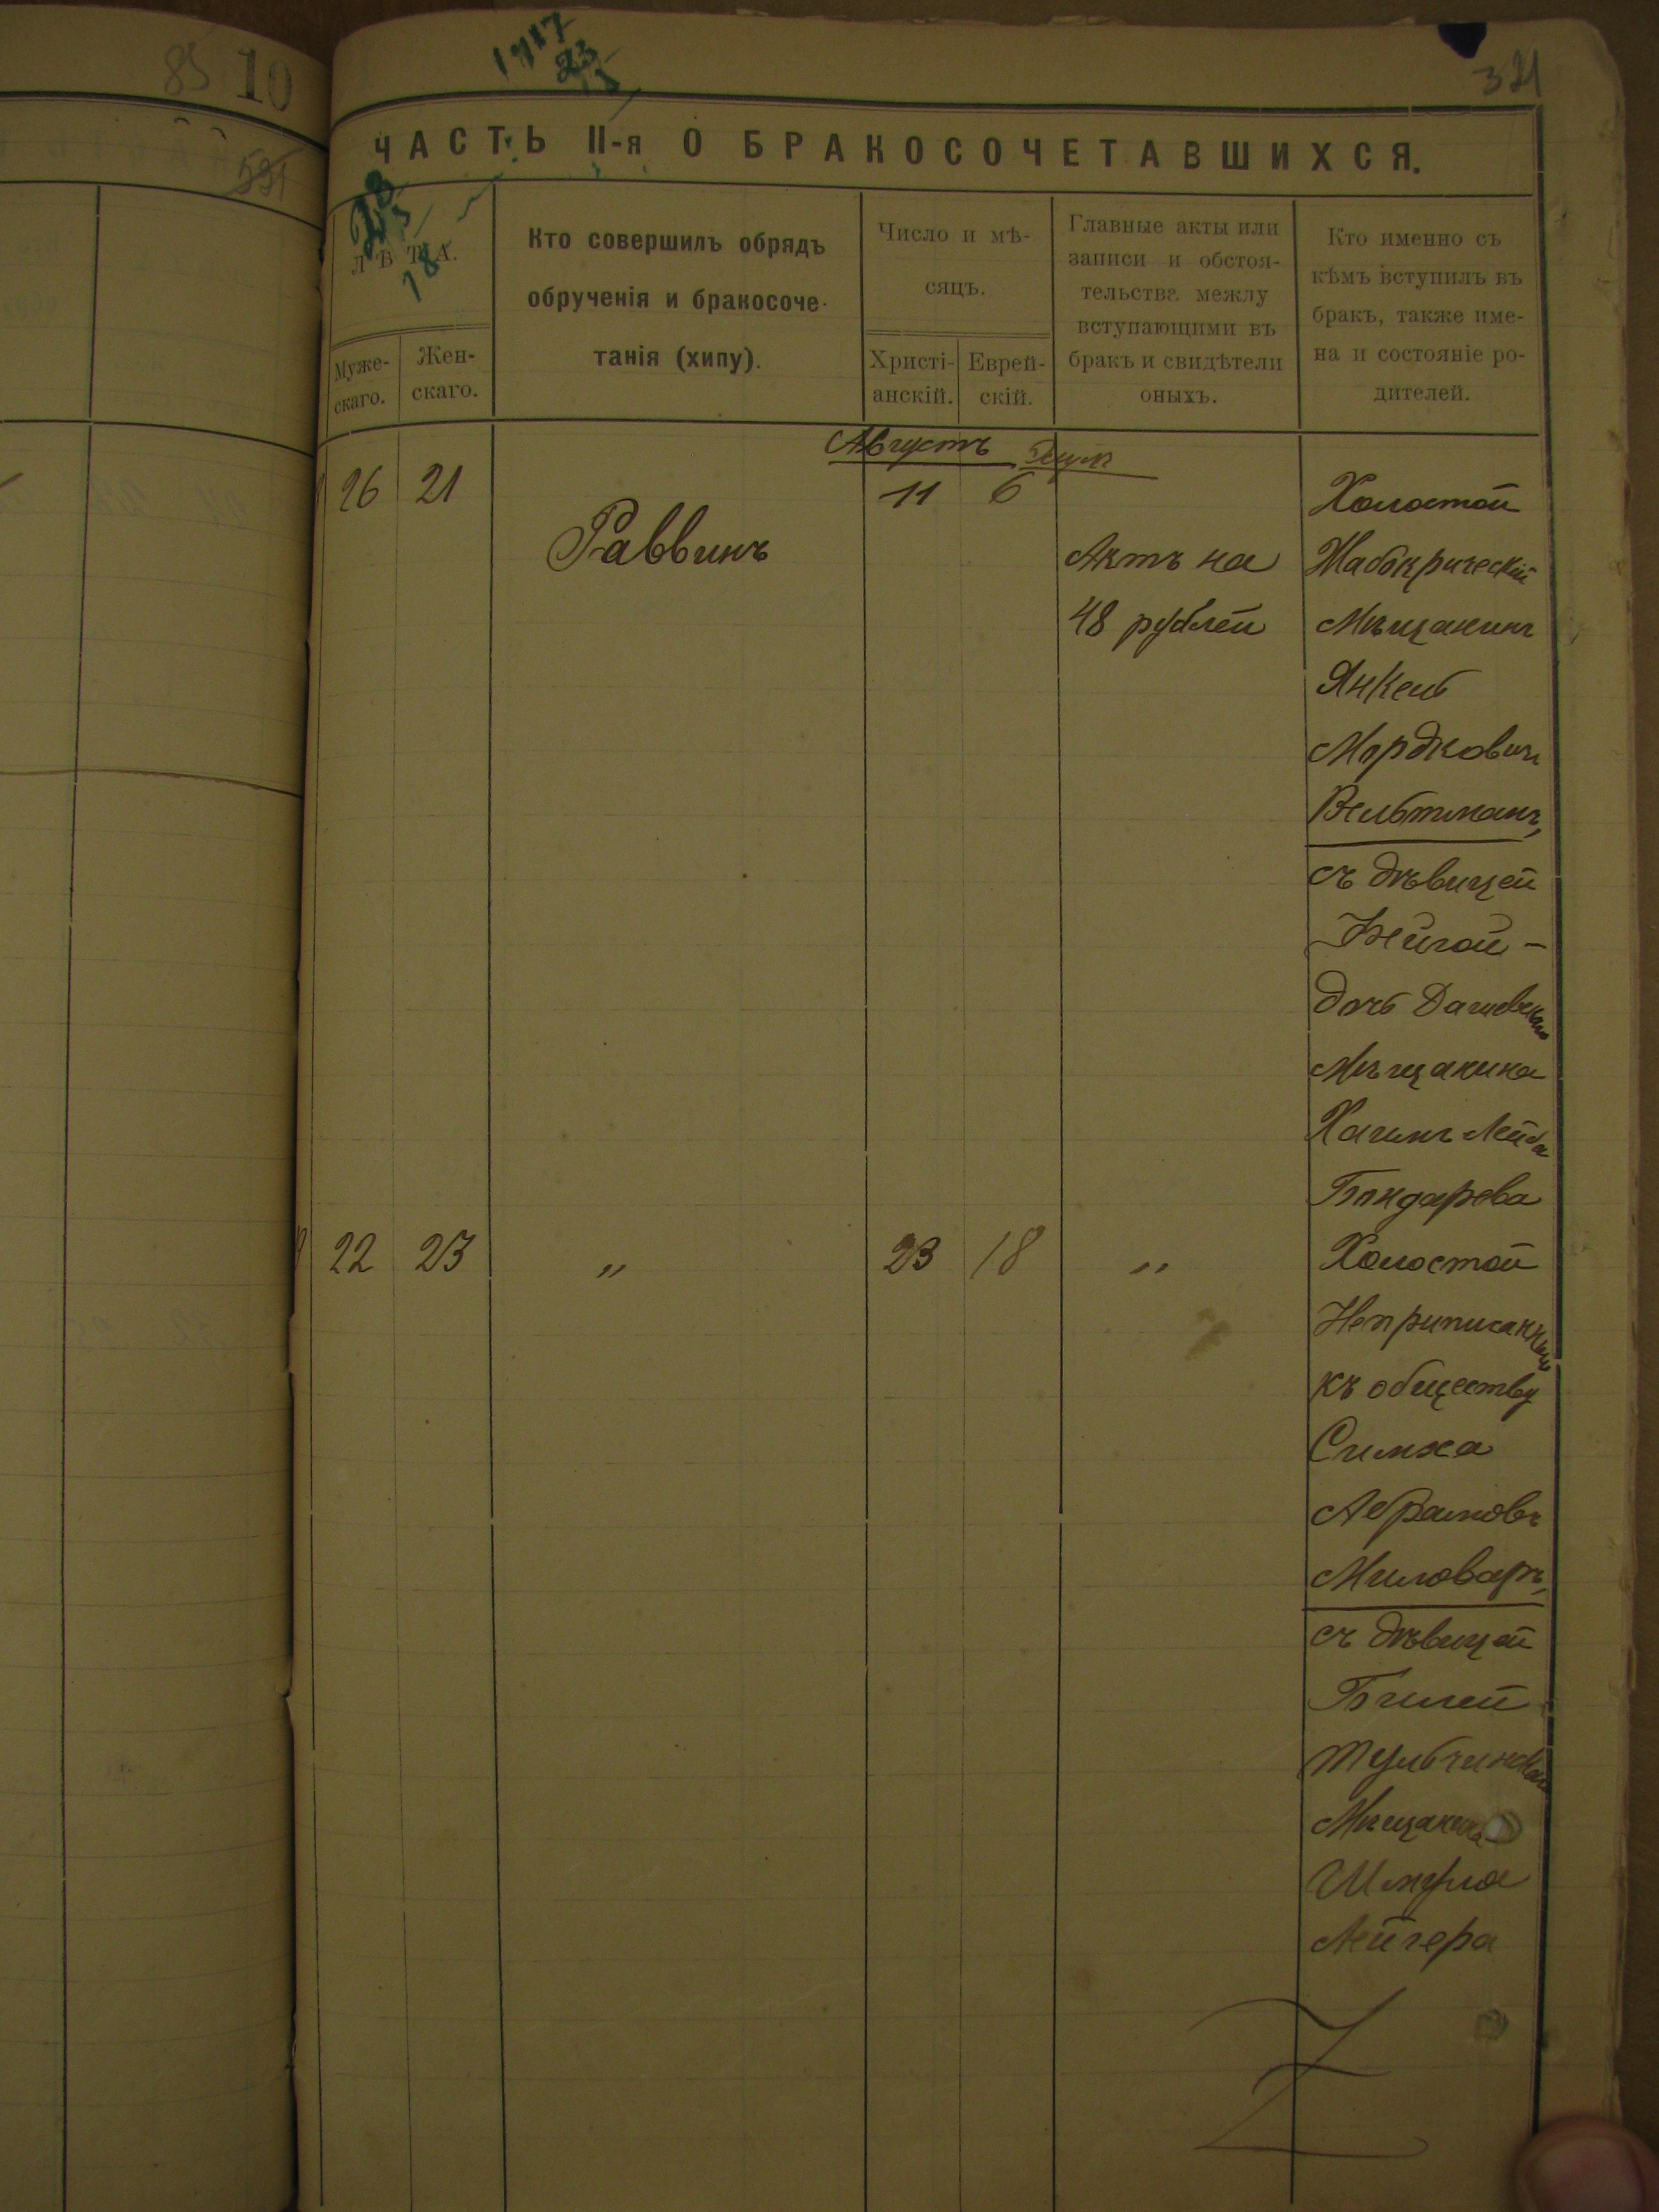 85 10
531
1917
23
321
ЧАСТЬ II-я О БРАКОСОЧЕТАВШИХСЯ.
ЛѢТА.
18
Муже-
скаго.
Жен-
скаго.
Кто совершилъ обрядъ
обрученія и бракосоче-
танія (хипу).
Число и мѣ-
сяцъ.
Христі-
анскій.
Еврей-
скій.
Главные акты или
записи и обстоя-
тельства между
вступающими въ
бракъ и свидѣтели
оныхъ.
Кто именно съ
кѣмъ вступилъ въ
бракъ, также име-
на и состояніе ро-
дителей.
Августъ
26 21
Раввинъ
11 6
Актъ на
48 рублей
Холостой
Жабокрическій
Мѣщанинъ
Янкель
Мордковичъ
Вельтманъ,
съ дѣвицей
Фейгой -
дочь Дашевскаго
Мѣщанина
Хаимъ Лейба
Бондарева
22 23
"
23 18
"
Холостой
Неприписанный
къ обществу
Симха
Абрамовъ
Миловаръ,
съ дѣвицей
Бгилей
Тульчинскаго
Мѣщанина
Шмуля
Лейгера